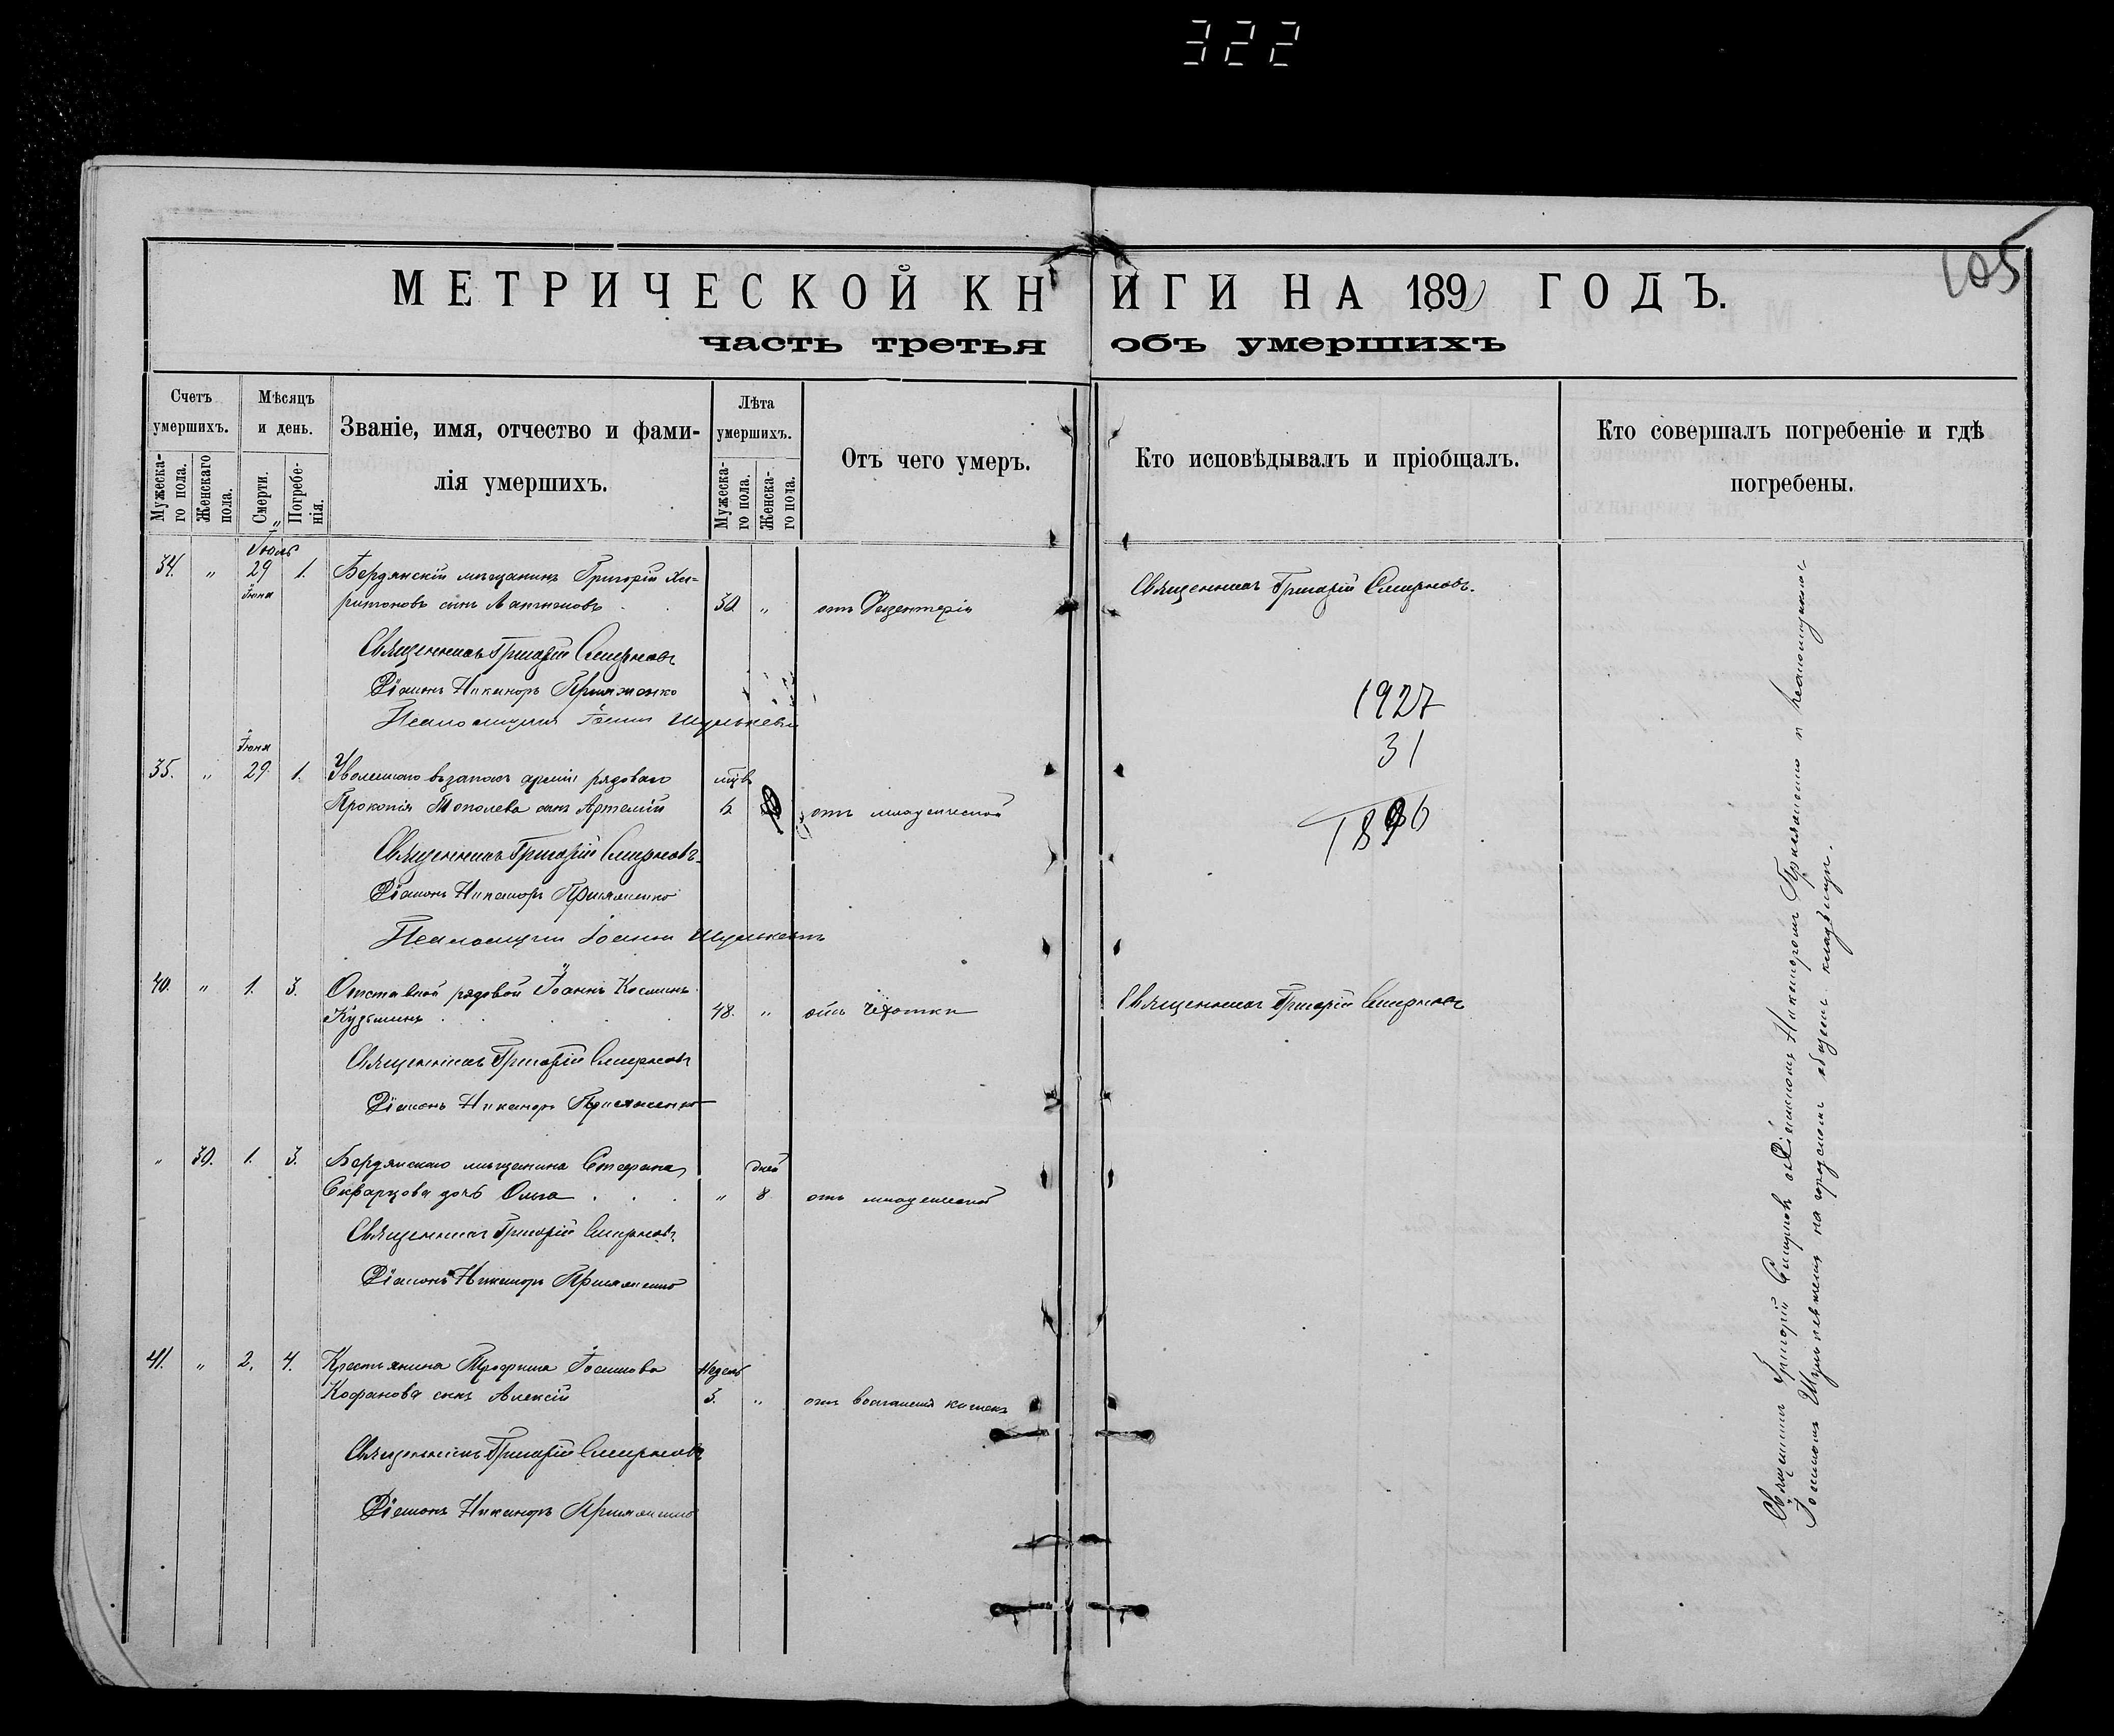 322
105
МЕТРИЧЕСКОЙ КНИГИ НА 189 ГОДЪ.
часть третья объ умершихъ
Счетъ умершихъ.
Мужеска-го пола.
Женскаго пола.
Мѣсяцъ и день.
Смерти.
Погребе-нія.
Званіе, имя, отчество и фами-
лія умершихъ.
Лѣта умершихъ.
Мужеска-го пола.
Женска-го пола.
Отъ чего умеръ.
Кто исповѣдывалъ и пріобщалъ.
Кто совершалъ погребеніе и гдѣ
погребены.
Іюль
34. " 29 1. Бердянскій мѣщанинъ Григорій Ха-
Іюня
ритоновъ сынъ 30 " отъ Дизентеріи
Священникъ Григорій Смирновъ.
Священникъ Григорій Смирновъ
Діаконъ Никаноръ Прияженко
Псаломщикъ Іоаннъ Шулькевичъ
1927
31
1896
Іюня
35. " 29 1. Уволеннаго въ запасъ арміи рядоваго
Прокопія Тополева сынъ Артемій отъ младенческой
Священникъ Григорій Смирновъ.
Діаконъ Никаноръ Прияженко
Псаломщикъ Іоаннъ Шулькевичъ
40. " 1. 3. Отставной рядовой Іоаннъ Косминъ
Кузьминъ 48. " отъ чахотки
Священникъ Григорій Смирновъ
Священникъ Григорій Смирновъ
Діаконъ Никаноръ Прияженко
" 30. 1. 3. Бердянскаго мѣщанина Стефана дней
Скварцова дочь Ольга " 8 отъ младенческой
Священникъ Григорій Смирновъ.
Діаконъ Никаноръ Прияженко
41. " 2. 4. Крестьянина Трофима Іоаннова Недель
Кофанова сынъ Алексій 3. " отъ воспаленія кишекъ
Священникъ Григорій Смирновъ
Діаконъ Никаноръ Прияженко
Священникъ Григорій Смирновъ съ Діакономъ Никаноромъ Прияженко и псаломщикомъ
Іоанномъ Шулькевичемъ на городскомъ общемъ кладбищѣ.